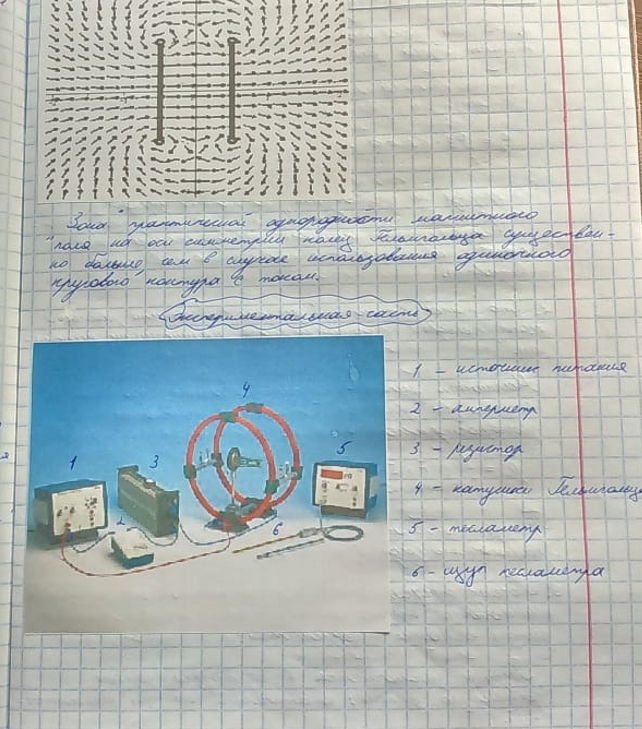 Зона "практической однородности магнитного
поля" на оси симметрии колец Гельмгольца существен-
но больше, чем в случае использования одиночного
кругового контура с током.
Экспериментальная часть
1 - источник питания
2 - амперметр
3 - резистор
4 - катушки Гельмгольца
5 - тесламетр
6 - щуп тесламетра
1
2
3
4
5
6